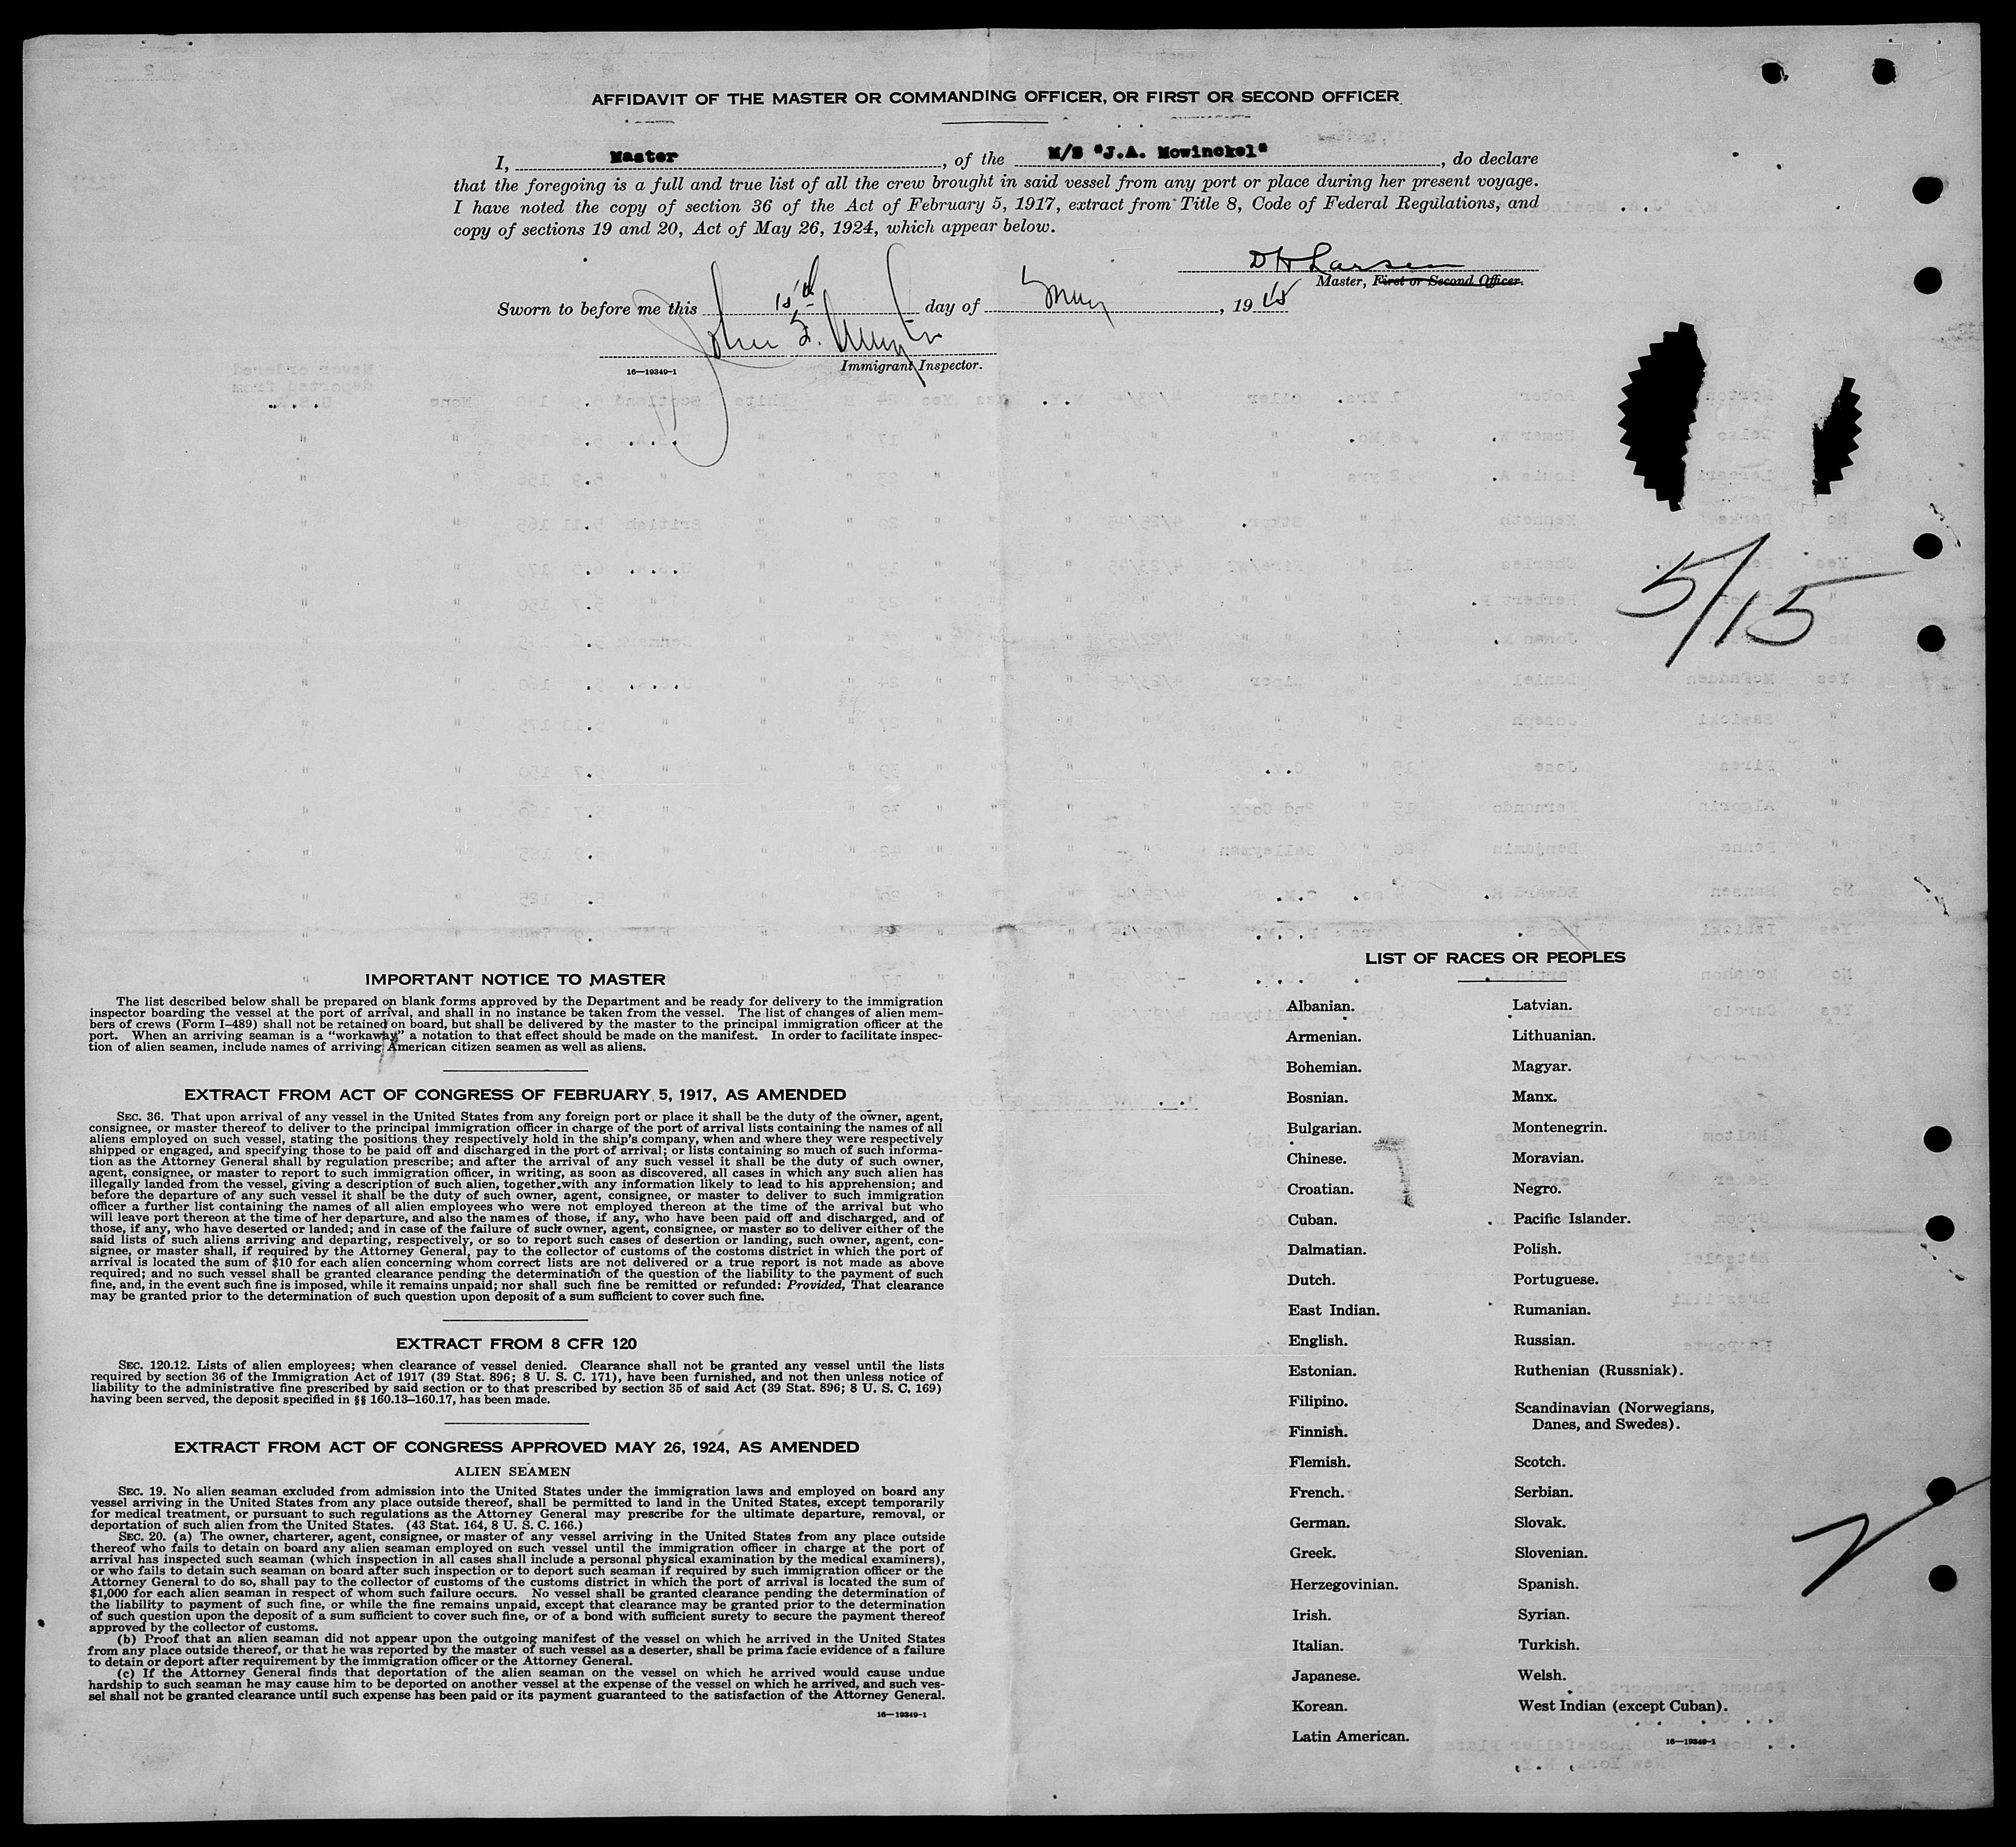 AFFIDAVIT OF THE MASTER OR COMMANDING OFFICER, OR FIRST OR SECOND OFFICER
I, Master, of the M/S "J.A. Mowinckel", do declare
that the foregoing is a full and true list of all the crew brought in said vessel from any port or place during her present voyage.
I have noted the copy of section 36 of the Act of February 5, 1917, extract from Title 8, Code of Federal Regulations, and
copy of sections 19 and 20, Act of May 26, 1924, which appear below.
D H Larsen
Master, First or Second Officer.
Sworn to before me this 15th day of May, 1945
John
16—19349-1 Immigrant Inspector.
5/15
IMPORTANT NOTICE TO MASTER
The list described below shall be prepared on blank forms approved by the Department and be ready for delivery to the immigration
inspector boarding the vessel at the port of arrival, and shall in no instance be taken from the vessel. The list of changes of alien mem-
bers of crews (Form I-489) shall not be retained on board, but shall be delivered by the master to the principal immigration officer at the
port. When an arriving seaman is a "workaway" a notation to that effect should be made on the manifest. In order to facilitate inspec-
tion of alien seamen, include names of arriving American citizen seamen as well as aliens.
EXTRACT FROM ACT OF CONGRESS OF FEBRUARY 5, 1917, AS AMENDED
SEC. 36. That upon arrival of any vessel in the United States from any foreign port or place it shall be the duty of the owner, agent,
consignee, or master thereof to deliver to the principal immigration officer in charge of the port of arrival lists containing the names of all
aliens employed on such vessel, stating the positions they respectively hold in the ship's company, when and where they were respectively
shipped or engaged, and specifying those to be paid off and discharged in the port of arrival; or lists containing so much of such informa-
tion as the Attorney General shall by regulation prescribe; and after the arrival of any such vessel it shall be the duty of such owner,
agent, consignee, or master to report to such immigration officer, in writing, as soon as discovered, all cases in which any such alien has
illegally landed from the vessel, giving a description of such alien, together with any information likely to lead to his apprehension; and
before the departure of any such vessel it shall be the duty of such owner, agent, consignee, or master to deliver to such immigration
officer a further list containing the names of all alien employees who were not employed thereon at the time of the arrival but who
will leave port thereon at the time of her departure, and also the names of those, if any, who have been paid off and discharged, and of
those, if any, who have deserted or landed; and in case of the failure of such owner, agent, consignee, or master so to deliver either of the
said lists of such aliens arriving and departing, respectively, or so to report such cases of desertion or landing, such owner, agent, con-
signee, or master shall, if required by the Attorney General, pay to the collector of customs of the costoms district in which the port of
arrival is located the sum of $10 for each alien concerning whom correct lists are not delivered or a true report is not made as above
required; and no such vessel shall be granted clearance pending the determination of the question of the liability to the payment of such
fine, and, in the event such fine is imposed, while it remains unpaid; nor shall such fine be remitted or refunded: Provided, That clearance
may be granted prior to the determination of such question upon deposit of a sum sufficient to cover such fine.
EXTRACT FROM 8 CFR 120
SEC. 120.12. Lists of alien employees; when clearance of vessel denied. Clearance shall not be granted any vessel until the lists
required by section 36 of the Immigration Act of 1917 (39 Stat. 896; 8 U. S. C. 171), have been furnished, and not then unless notice of
liability to the administrative fine prescribed by said section or to that prescribed by section 35 of said Act (39 Stat. 896; 8 U. S. C. 169)
having been served, the deposit specified in §§ 160.13–160.17, has been made.
EXTRACT FROM ACT OF CONGRESS APPROVED MAY 26, 1924, AS AMENDED
ALIEN SEAMEN
SEC. 19. No alien seaman excluded from admission into the United States under the immigration laws and employed on board any
vessel arriving in the United States from any place outside thereof, shall be permitted to land in the United States, except temporarily
for medical treatment, or pursuant to such regulations as the Attorney General may prescribe for the ultimate departure, removal, or
deportation of such alien from the United States. (43 Stat. 164, 8 U. S. C. 166.)
SEC. 20. (a) The owner, charterer, agent, consignee, or master of any vessel arriving in the United States from any place outside
thereof who fails to detain on board any alien seaman employed on such vessel until the immigration officer in charge at the port of
arrival has inspected such seaman (which inspection in all cases shall include a personal physical examination by the medical examiners),
or who fails to detain such seaman on board after such inspection or to deport such seaman if required by such immigration officer or the
Attorney General to do so, shall pay to the collector of customs of the customs district in which the port of arrival is located the sum of
$1,000 for each alien seaman in respect of whom such failure occurs. No vessel shall be granted clearance pending the determination of
the liability to payment of such fine, or while the fine remains unpaid, except that clearance may be granted prior to the determination
of such question upon the deposit of a sum sufficient to cover such fine, or of a bond with sufficient surety to secure the payment thereof
approved by the collector of customs.
(b) Proof that an alien seaman did not appear upon the outgoing manifest of the vessel on which he arrived in the United States
from any place outside thereof, or that he was reported by the master of such vessel as a deserter, shall be prima facie evidence of a failure
to detain or deport after requirement by the immigration officer or the Attorney General.
(c) If the Attorney General finds that deportation of the alien seaman on the vessel on which he arrived would cause undue
hardship to such seaman he may cause him to be deported on another vessel at the expense of the vessel on which he arrived, and such ves-
sel shall not be granted clearance until such expense has been paid or its payment guaranteed to the satisfaction of the Attorney General.
16—19349-1
LIST OF RACES OR PEOPLES
Albanian.
Armenian.
Bohemian.
Bosnian.
Bulgarian.
Chinese.
Croatian.
Cuban.
Dalmatian.
Dutch.
East Indian.
English.
Estonian.
Filipino.
Finnish.
Flemish.
French.
German.
Greek.
Herzegovinian.
Irish.
Italian.
Japanese.
Korean.
Latin American.
Latvian.
Lithuanian.
Magyar.
Manx.
Montenegrin.
Moravian.
Negro.
Pacific Islander.
Polish.
Portuguese.
Rumanian.
Russian.
Ruthenian (Russniak).
Scandinavian (Norwegians,
Danes, and Swedes).
Scotch.
Serbian.
Slovak.
Slovenian.
Spanish.
Syrian.
Turkish.
Welsh.
West Indian (except Cuban).
16—19349-1